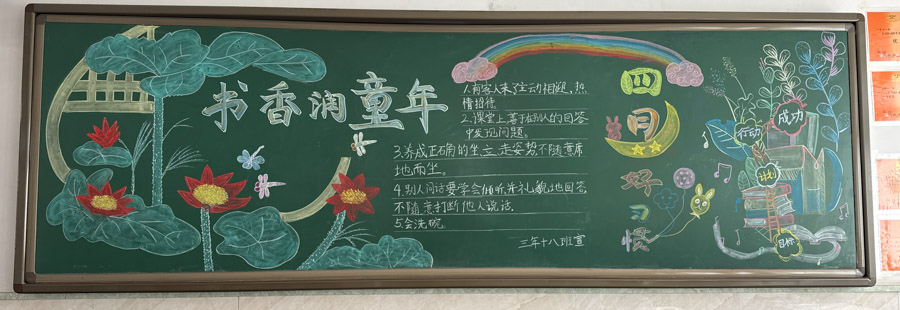 书香润童年
1.有客人来了主动相迎,热
情招待
2.课堂上善于在别人的回答
中发现问题。
3.养成正确的坐、立、走姿势,不随意席
地而坐。
4.别人问话要学会倾听,并礼貌地回答
不随意打断他人说话.
5.会洗碗.
三年十八班宣
四
月
好
习
惯
行动
成功
计划
目标